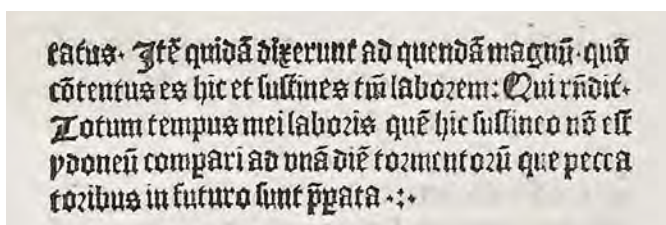 catus. Itē quidā dixerunt ad quendā magnū. quō
cōtentus es hic et sustines tm̄ laborem: Qui rn̄dit.
Totum tempus mei laboris quē hic sustineo nō est
ydoneū compari ad vnā diē tormentorū que pecca
toribus in futuro sunt p̄pata .:.